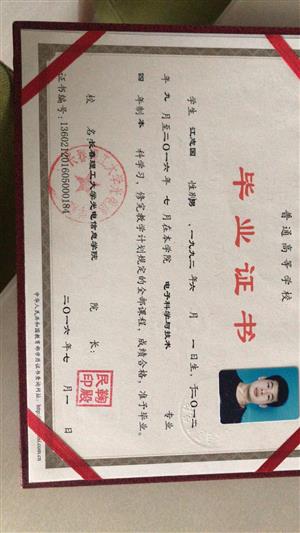 普通高等学校
毕业证书
学生 江志国 性别男，一九九二年 六月 一日生，于二〇一二
年 九 月至二〇一六年 七 月在本学院 电子科学与技术 专业
四 年制 本 科学习，修完教学计划规定的全部课程，成绩合格，准予毕业。
校 名：长春理工大学光电信息学院 院 长：
鞠殿民印
证书编号：136021201605000184
二〇一六年 七 月 一 日
中华人民共和国教育部学历证书查询网址：http: